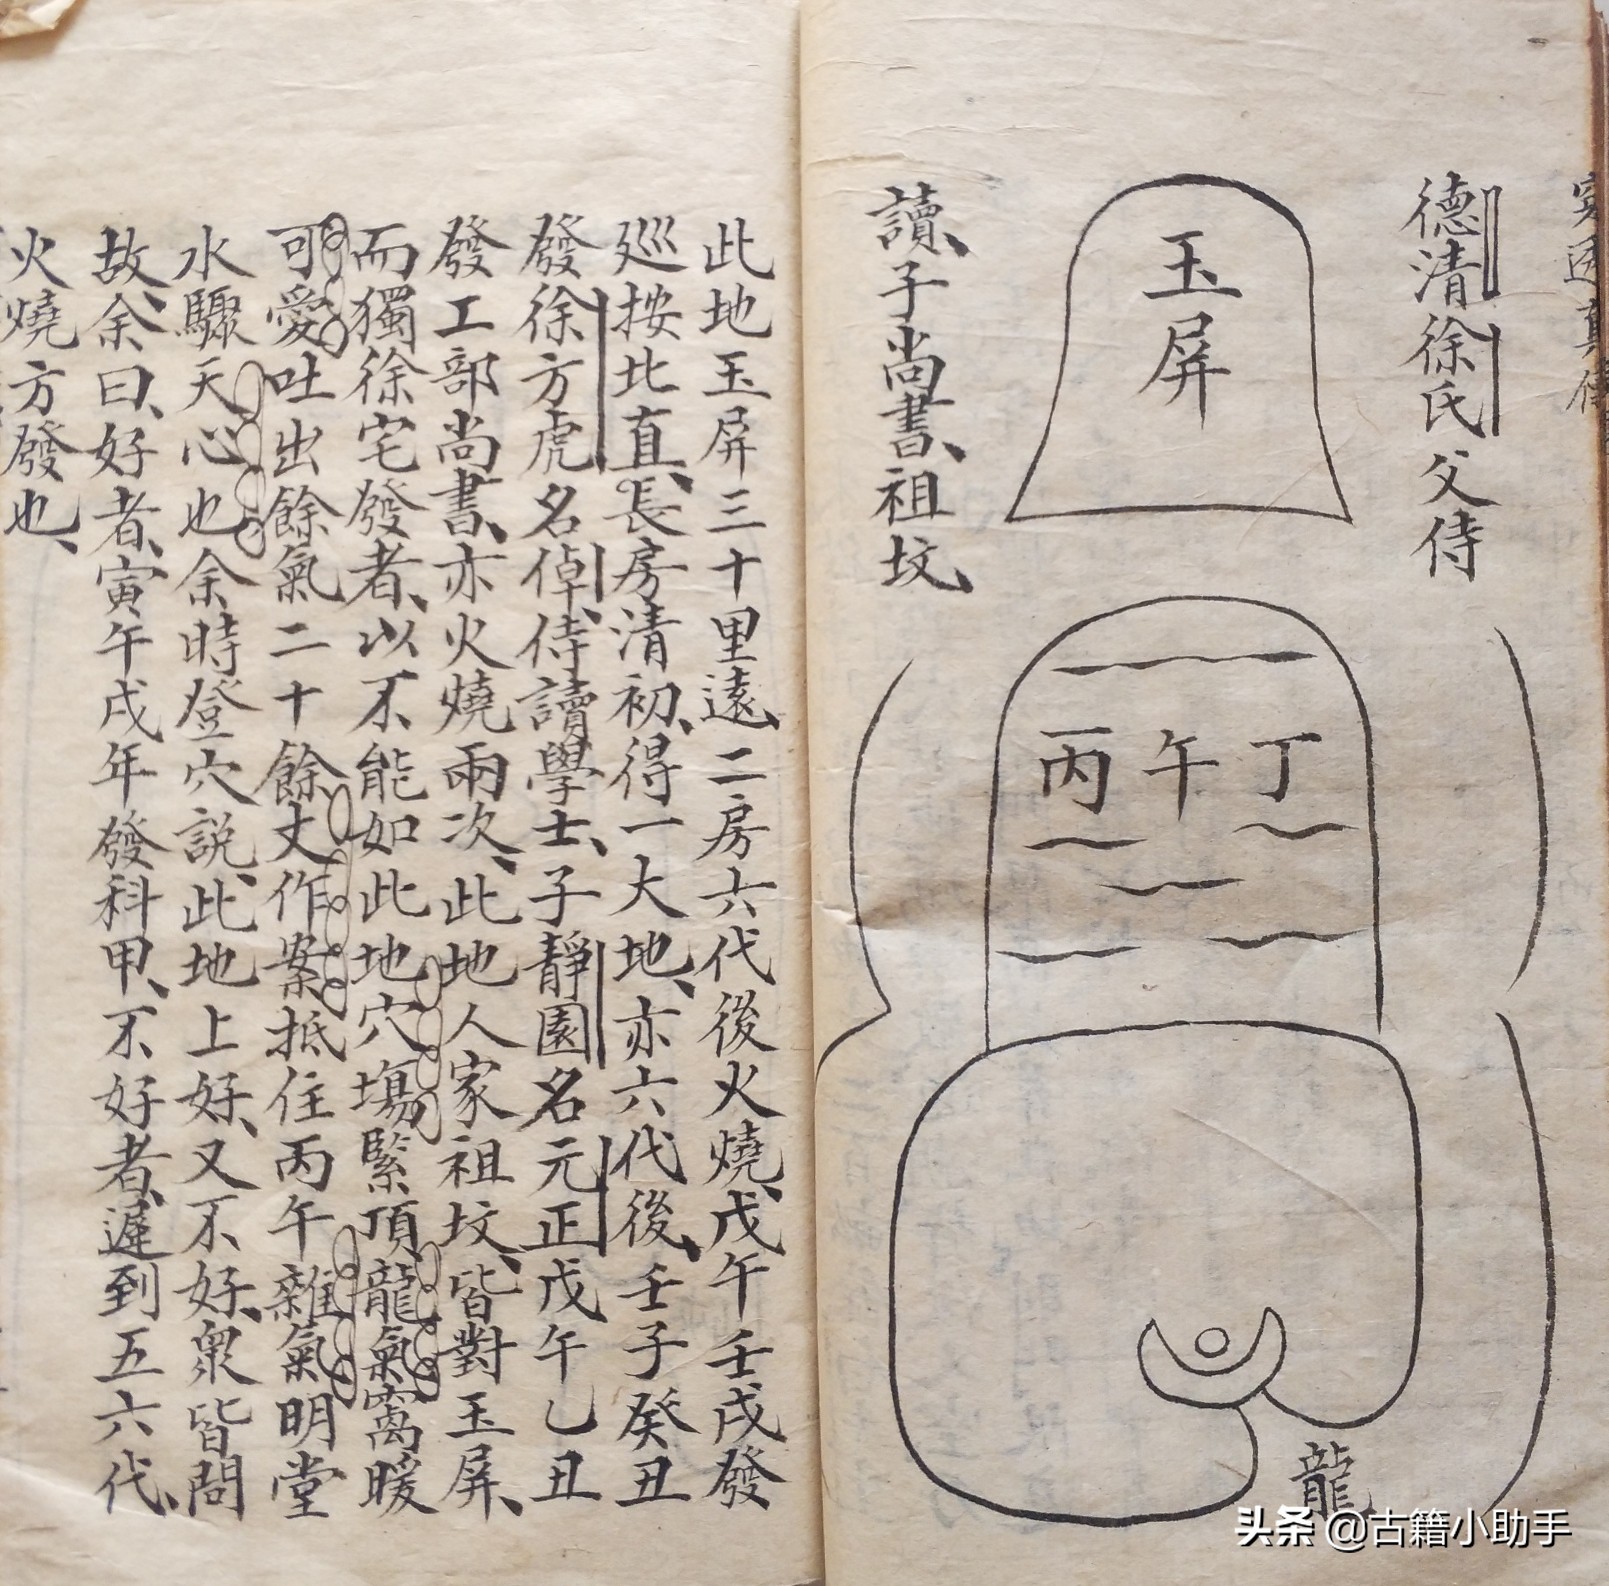 德清徐氏父侍
讀、子尚書、祖坟、
玉屏
丙午丁
龍
此地玉屏三十里遠、二房六代後火燒、戊午壬戌發
巡按北直、長房清初、得一大地、亦六代後、壬子癸丑
發徐方虎名倬、侍讀學士、子靜園名元正戊午乙丑
發工部尚書、亦火燒兩次、此地人家祖坟、皆對玉屏、
而獨徐宅發者、以不能如此地穴塲緊頂龍氣窩暖
可愛吐出餘氣二十餘丈作案抵住丙午雜氣明堂
水驟天心也余時登穴說、此地上好、又不好、衆皆問
故、余曰、好者、寅午戌年發科甲、不好者、遲到五六代、
火燒方發也、
头条 @古籍小助手